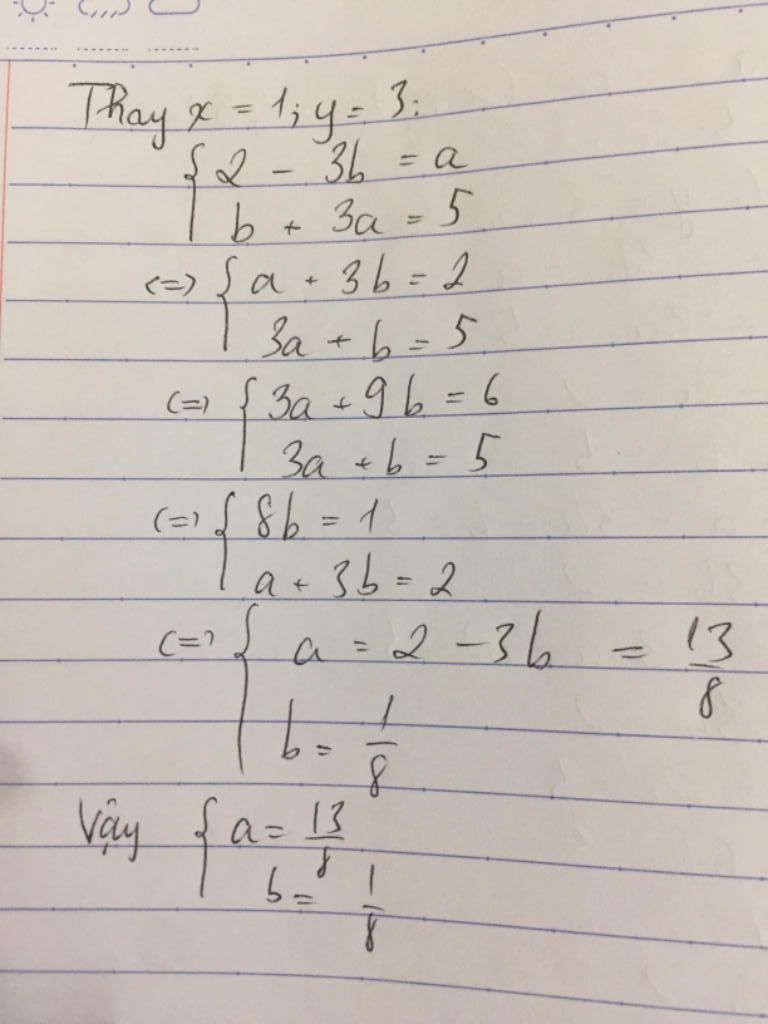 Thay x = 1; y = 3:
{ 2 - 3b = a
b + 3a = 5
<=> { a + 3b = 2
3a + b = 5
<=> { 3a + 9b = 6
3a + b = 5
<=> { 8b = 1
a + 3b = 2
<=> { a = 2 - 3b = 13/8
b = 1/8
Vậy { a = 13/8
b = 1/8